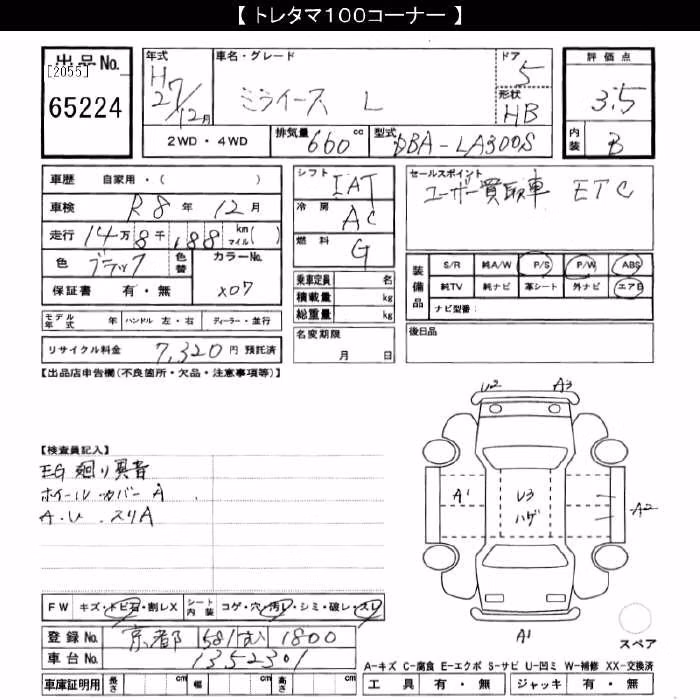 【 トレタマ100コーナー 】
出品No.
[2055]
65224
年式 H27/12月
車名・グレード ミライース L
ドア 5
形状 HB
評価点 3.5
内装 B
2WD・4WD
排気量 660 cc
型式 DBA-LA300S
車歴 自家用・( )
車検 R8年 12月
走行 14万8千188 km マイル( )
色 ブラック
色替
カラーNo. X07
保証書 有・無
モデル年式 年
ハンドル 左・右
ディーラー・並行
リサイクル料金 7,320 円 預託済
シフト IAT
冷房 AC
燃料 G
乗車定員 名
積載量 kg
総重量 kg
名変期限 月 日
セールスポイント
ユーザー買取車 ETC
装備品
S/R 純A/W P/S P/W ABS
純TV 純ナビ 革シート 外ナビ エアB
ナビ型番:
後日品
【出品店申告欄(不良箇所・欠品・注意事項等)】
【検査員記入】
EG廻り異音
ホイールカバーA
A.U.スリA
U2 A3
A1 U3 ハゲ A2
A1
スペア
FW キズ・トビ石・割レX
シート内装 コゲ・穴・汚レ・シミ・破レ・スレ
登録No. 京都 581 む 1800
車台No. 1352301
車庫証明用 長さ 幅 高さ
A-キズ C-腐食 E-エクボ S-サビ U-凹ミ W-補修 XX-交換済
工具 有・無 ジャッキ 有・無